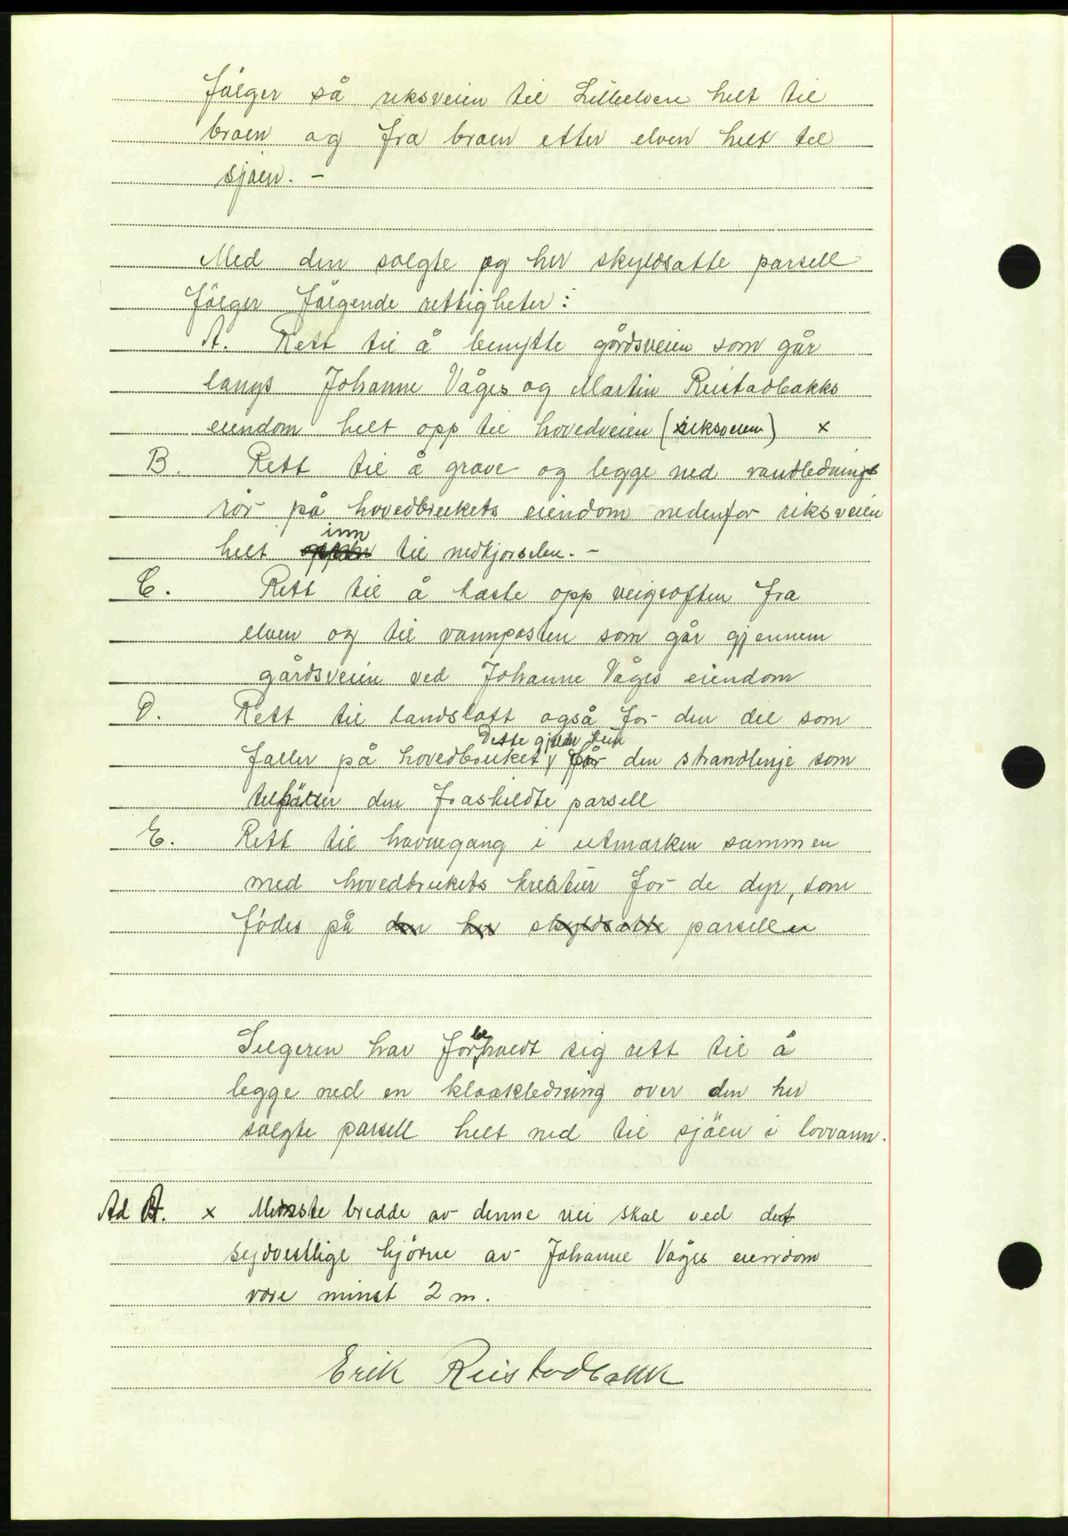 følger så riksveien til Lilleelven helt til
broen og fra broen etter elven helt til
sjøen. -
Med den solgte og her skyldsatte parsell
følger følgende rettigheter:
A. Rett til å benytte gårdsveien som går
langs Johanne Våges og Martin Reistadbakks
eiendom helt opp til hovedveien (riksveien) x
B. Rett til å grave og legge ned vandlednings
rør på hovedbrukets eiendom nedenfor riksveien
helt inn til nedkjørselen. -
C. Rett til å kaste opp veigrøften fra
elven og til vannposten som går gjennem
gårdsveien ved Johanne Våges eiendom
D. Rett til landslott også for den del som
faller på hovedbruket, Dette gjelder kun den strandlinje som
tilhører den fraskildte parsell
E. Rett til havnegang i utmarken sammen
med hovedbrukets kreatur for de dyr, som
fødes på den her skyldsatte parsellen
Selgeren har forbeholdt sig rett til å
legge ned en kloakledning over den her
solgte parsell helt ned til sjøen i lovvann.
Ad A. x Minste bredde av denne vei skal ved det
sydvestlige hjørne av Johanne Våges eiendom
være minst 2 m.
Erik Reistadbakk